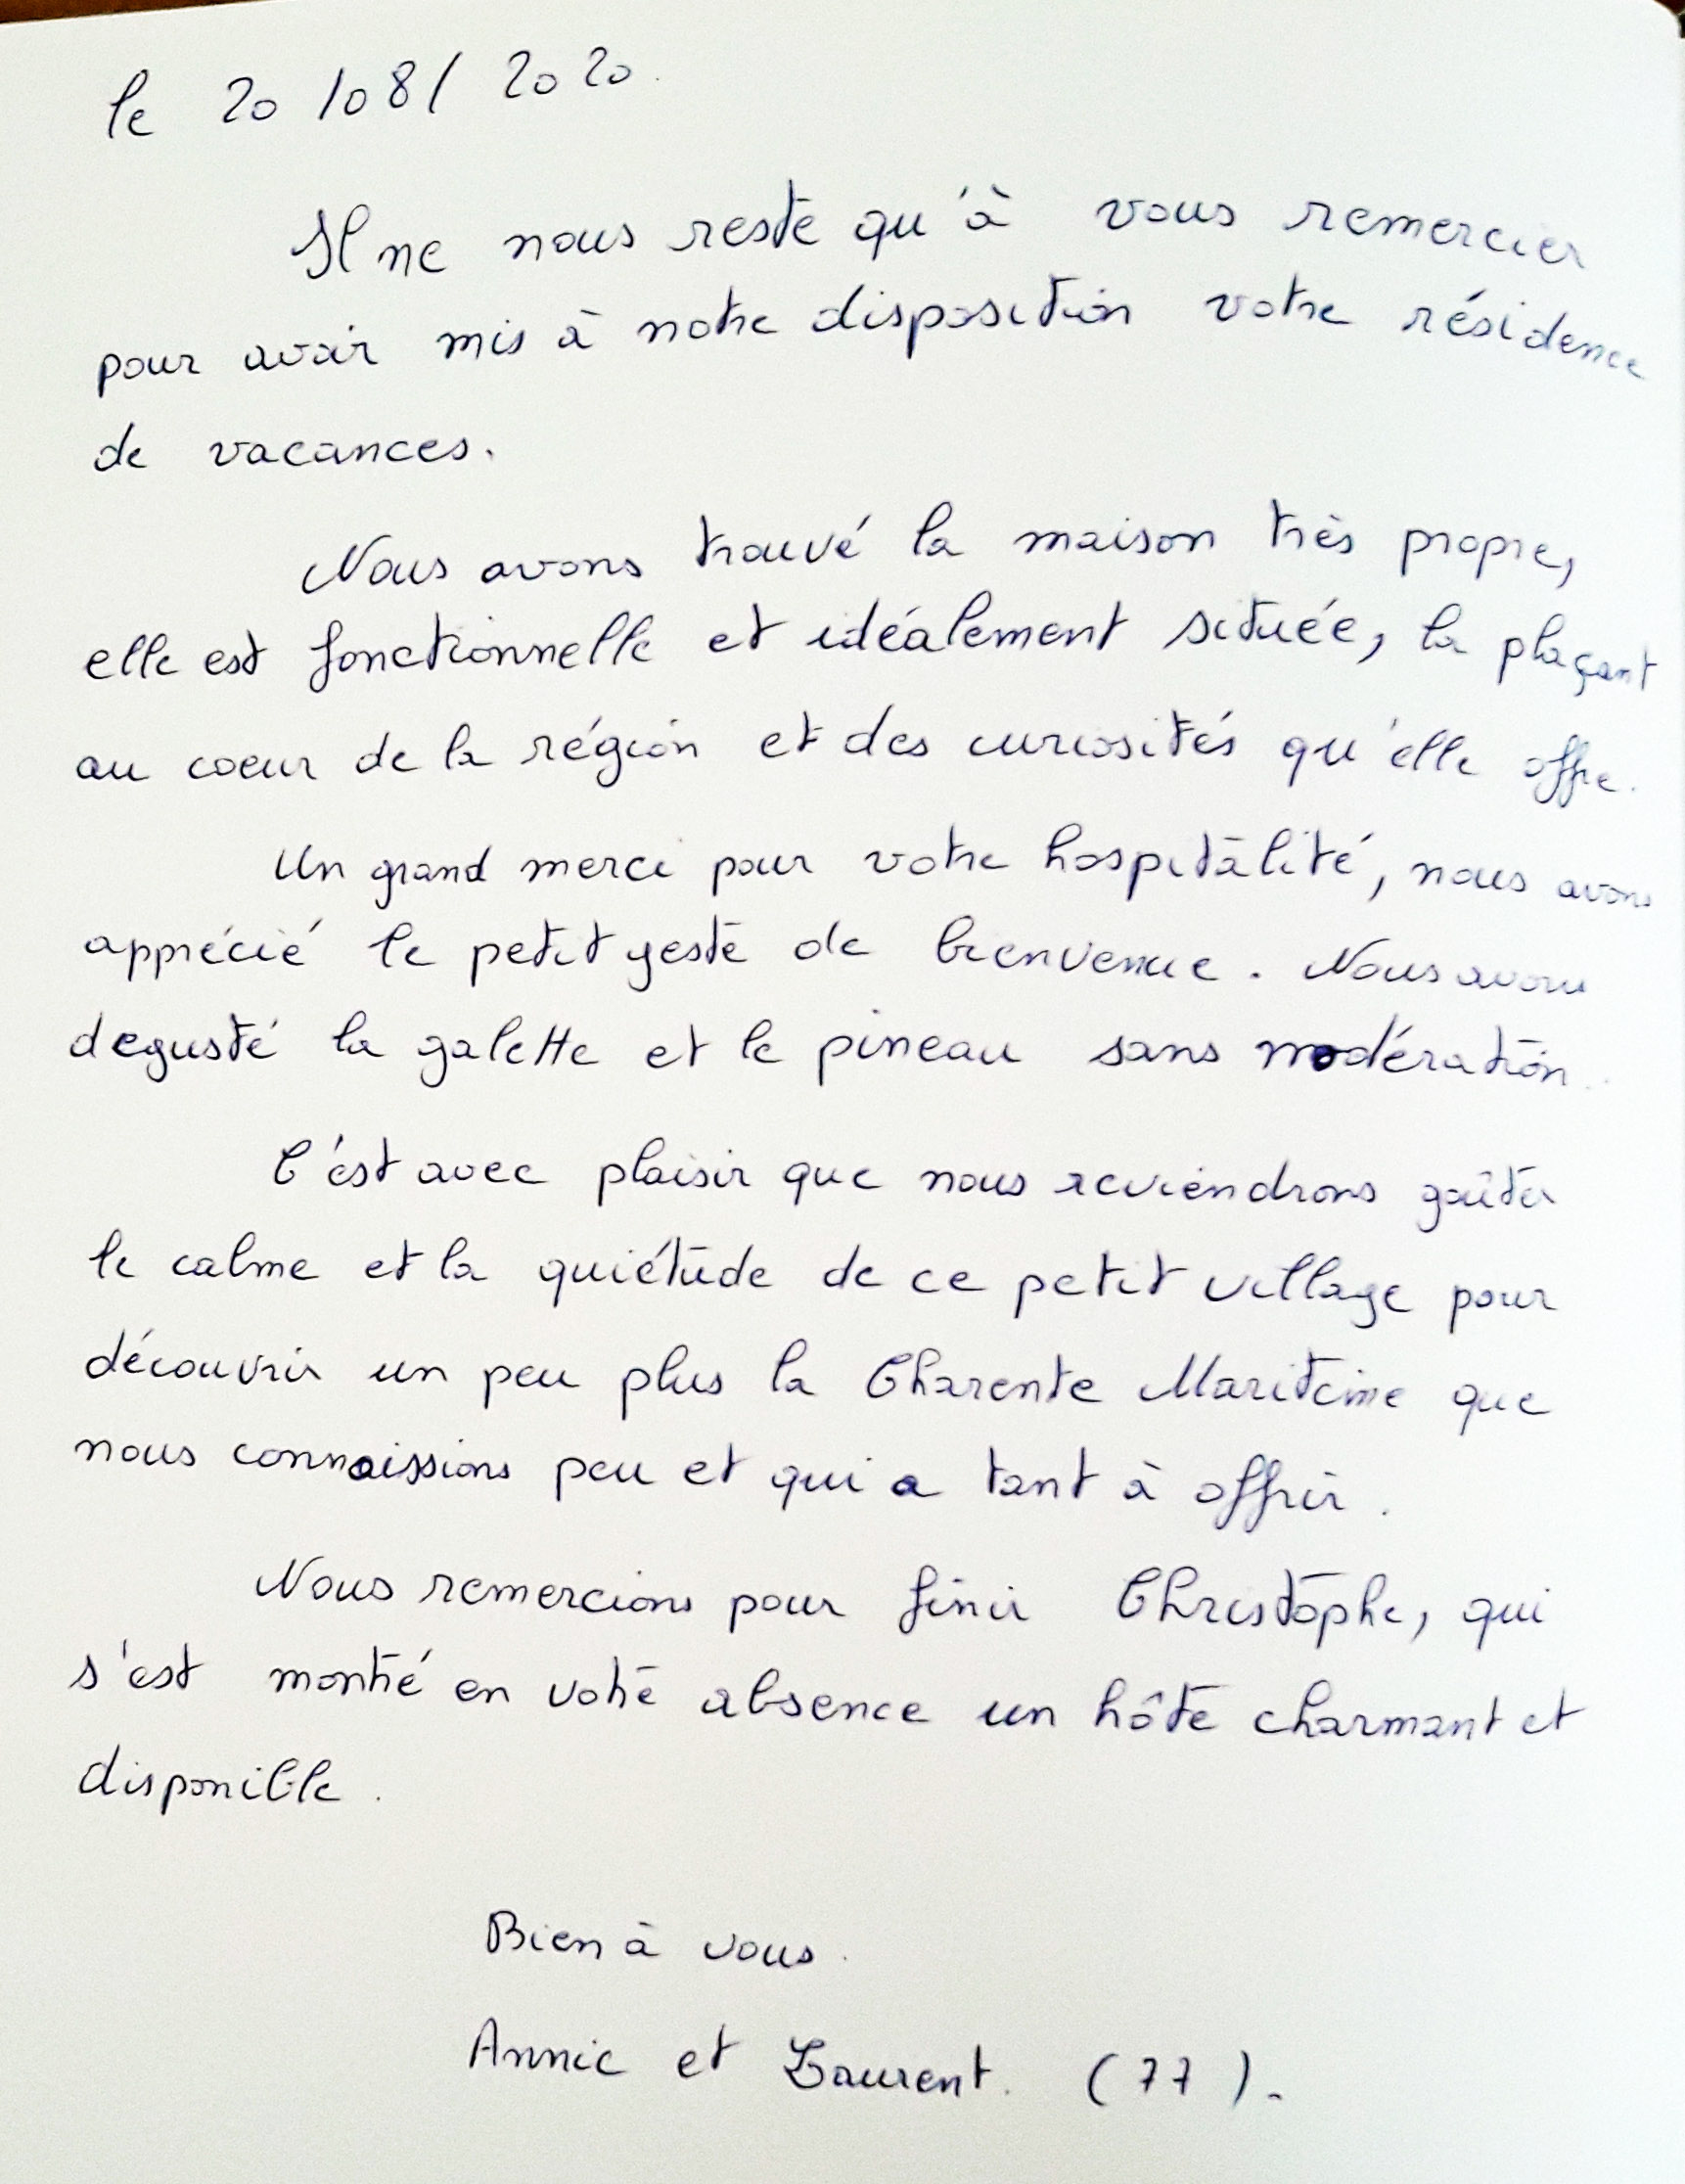 le 20/08/2020.
Il ne nous reste qu'à vous remercier
pour avoir mis à notre disposition votre résidence
de vacances.
Nous avons trouvé la maison très propre,
elle est fonctionnelle et idéalement située, la plaçant
au coeur de la région et des curiosités qu'elle offre.
Un grand merci pour votre hospitalité, nous avons
apprécié le petit geste de bienvenue. Nous avons
degusté la galette et le pineau sans modération.
C'est avec plaisir que nous reviendrons goûter
le calme et la quiétude de ce petit village pour
découvrir un peu plus la Charente Maritime que
nous connaissions peu et qui a tant à offrir.
Nous remercions pour finir Christophe, qui
s'est montré en votre absence un hôte charmant et
disponible.
Bien à vous.
Annie et Laurent. (77).